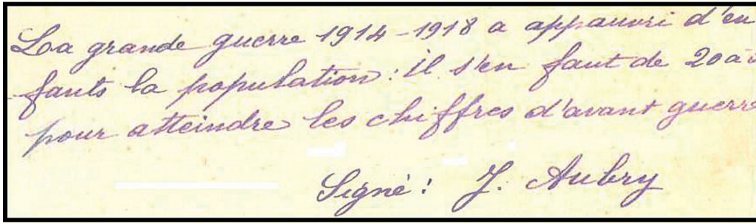 La grande guerre 1914-1918 a appauvri d'en
fants la population: il s'en faut de 20 à
pour atteindre les chiffres d'avant guerre
Signé: J. Aubry